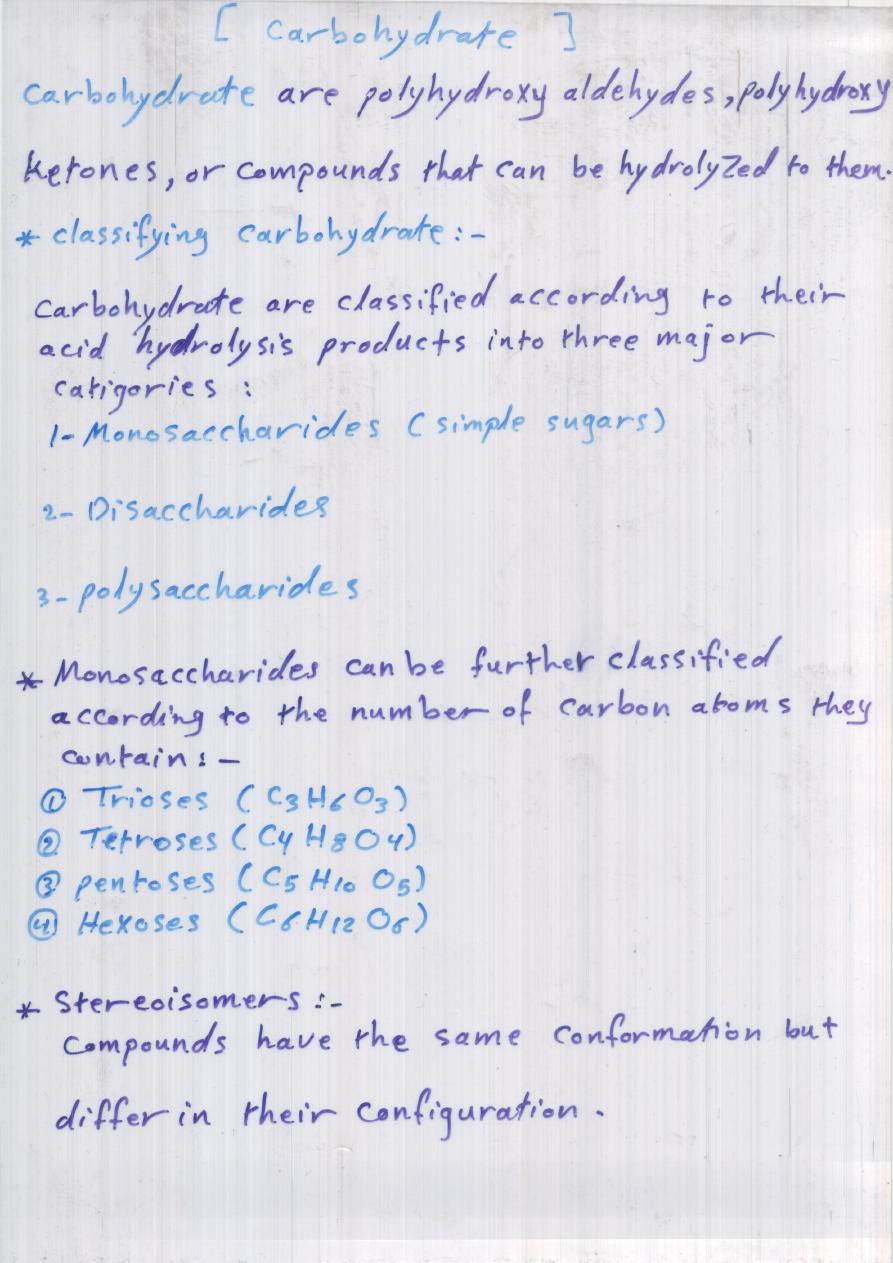 [ Carbohydrate ]
Carbohydrate are polyhydroxy aldehydes, polyhydroxy
ketones, or compounds that can be hydrolyzed to them.
* classifying Carbohydrate :-
Carbohydrate are classified according to their
acid hydrolysis products into three major
catigories :
1- Monosaccharides ( simple sugars)
2- Disaccharides
3- polysaccharides
* Monosaccharides can be further classified
according to the number of carbon atoms they
contain : -
① Trioses ( C3H6O3)
② Tetroses ( C4H8O4)
③ pentoses ( C5H10O5)
④ Hexoses ( C6H12O6)
* Stereoisomers :-
Compounds have the same conformation but
differ in their configuration .